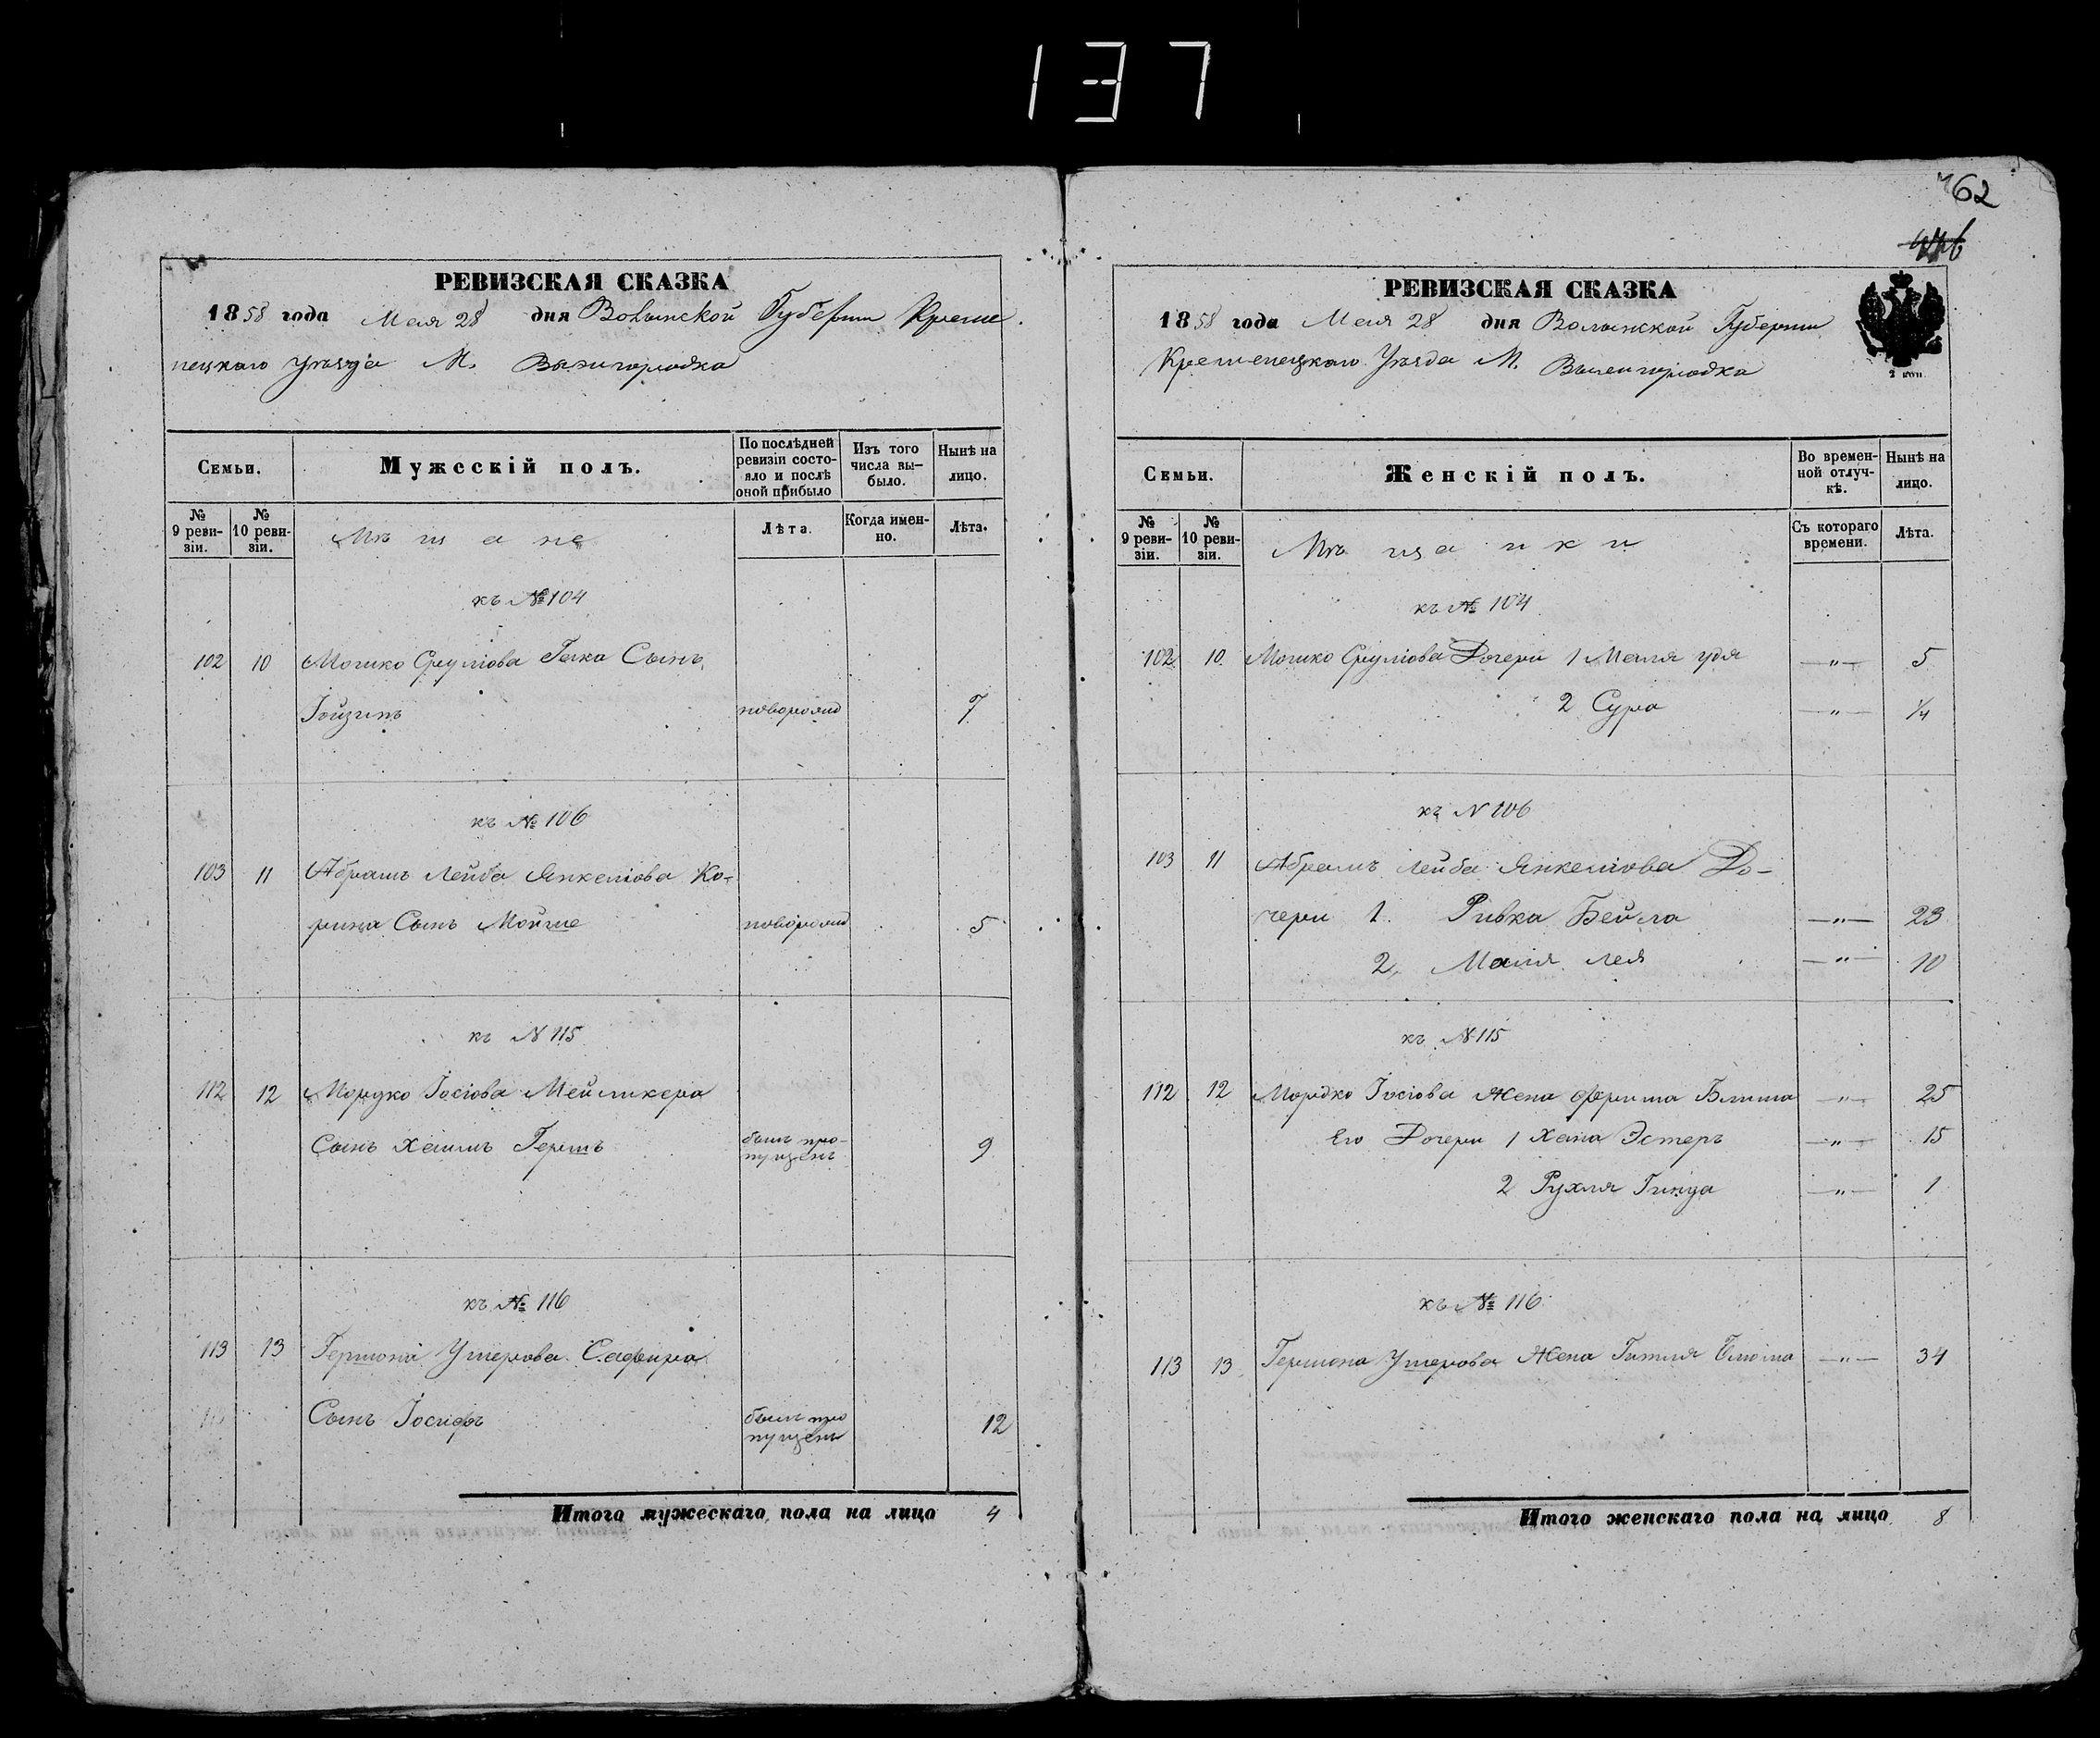 137
РЕВИЗСКАЯ СКАЗКА
1858 года Мая 28 дня Волынской Губерніи Креме
нецкаго уѣзда М. Вышгородка
Семьи.
Мужескій полъ.
По послѣдней ревизіи состояло и послѣ оной прибыло
Изъ того числа вы-было.
Нынѣ на лицо.
№ 9 реви-зіи.
№ 10 реви-зіи.
Мѣщане
Лѣта.
Когда имен-но.
Лѣта.
къ №104
102 10 Мошко Сруліова Сынъ
новорожд 7
къ № 106
103 11 Абрамъ Лейба Янкеліова Ко-
рица Сынъ Мойше новорожд 5
къ N 115
112 12 Мордко Іосіова Мейликера
Сынъ Хаимъ Гершъ былъ про-пущенъ 9
къ № 116
113 13 Гершона Ушерова Сафира
Сынъ Іосифъ былъ про пущенъ 12
Итого мужескаго пола на лицо 4
462
РЕВИЗСКАЯ СКАЗКА
1858 года Мая 28 дня Волынской Губерніи
Кременецкаго Уѣзда М. Вышгородка
2 коп.
Семьи.
Женскій полъ.
Во времен-ной отлуч-кѣ.
Нынѣ на лицо.
№ 9 реви-зіи.
№ 10 реви-зіи.
Мѣщанки
Съ котораго времени.
Лѣта.
къ № 104
102 10 Мошко Сруліова Дочери 1 Маля —"— 5
2 Сура —"— 1/4
къ N 106
103 11 Абрамъ Лейба Янкеліова До-
чери 1. Ривка Бейла —"— 23
2, Маля Лея —"— 10
къ N 115
112 12 Мордко Іосіова Жена Фрима Блима —"— 25
Его Дочери 1 Хана Эстеръ —"— 15
2 Рухля Гинда —"— 1
къ № 116
113 13 Гершона Ушерова Жена Гитля Блюма —"— 34
Итого женскаго пола на лицо 8